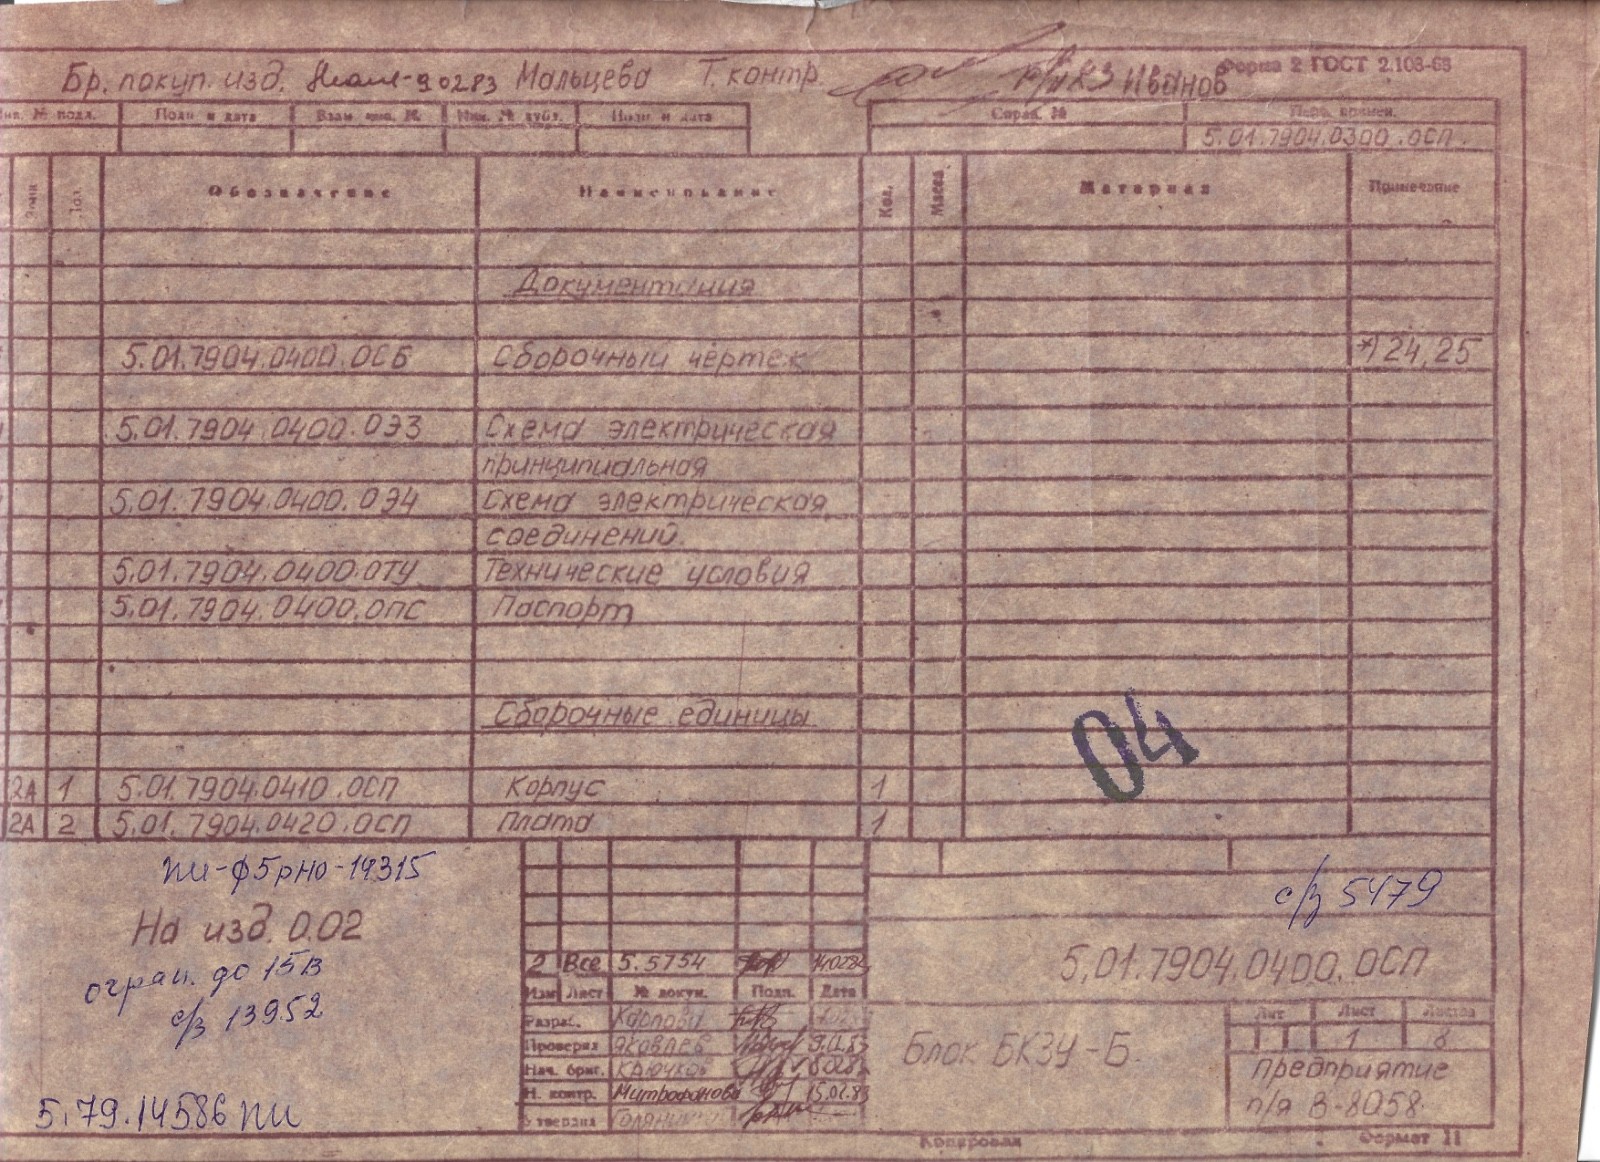 Форма 2 ГОСТ 2.108-68
Бр. покуп. изд. Мальцева Т. контр. Иванов
Инв. № подл. Подп и дата Взам инв. № Инв. № дубл. Подп и дата Справ. № Перв. примен.
5.01.7904.0300.ОСП.
Зона Поз. Обозначение Наименование Кол. Масса Материал Примечание
Документация
5.01.7904.0400.ОСБ Сборочный чертеж *) 24, 25
5.01.7904.0400.ОЭ3 Схема электрическая
принципиальная
5.01.7904.0400.ОЭ4 Схема электрическая
соединений.
5.01.7904.0400.ОТУ Технические условия
5.01.7904.0400.ОПС Паспорт
Сборочные единицы
04
2А 1 5.01.7904.0410.ОСП Корпус 1
2А 2 5.01.7904.0420.ОСП Плата 1
с/з 5479
На изд. 0.02
огран. до 15В
с/з 13952
5.79.14586 ПИ
2 Все 5.5754
Изм Лист № докум. Подп. Дата
Разраб. Карпова
Проверил Яковлев
Нач. бриг. Крючков
Н. контр. Митрофанова 15.02.83
Утвердил
5.01.7904.0400.ОСП
Блок БКЗУ-Б.
Лит Лист Листов
1 8
Предприятие
п/я В-8058.
Копировал Формат 11